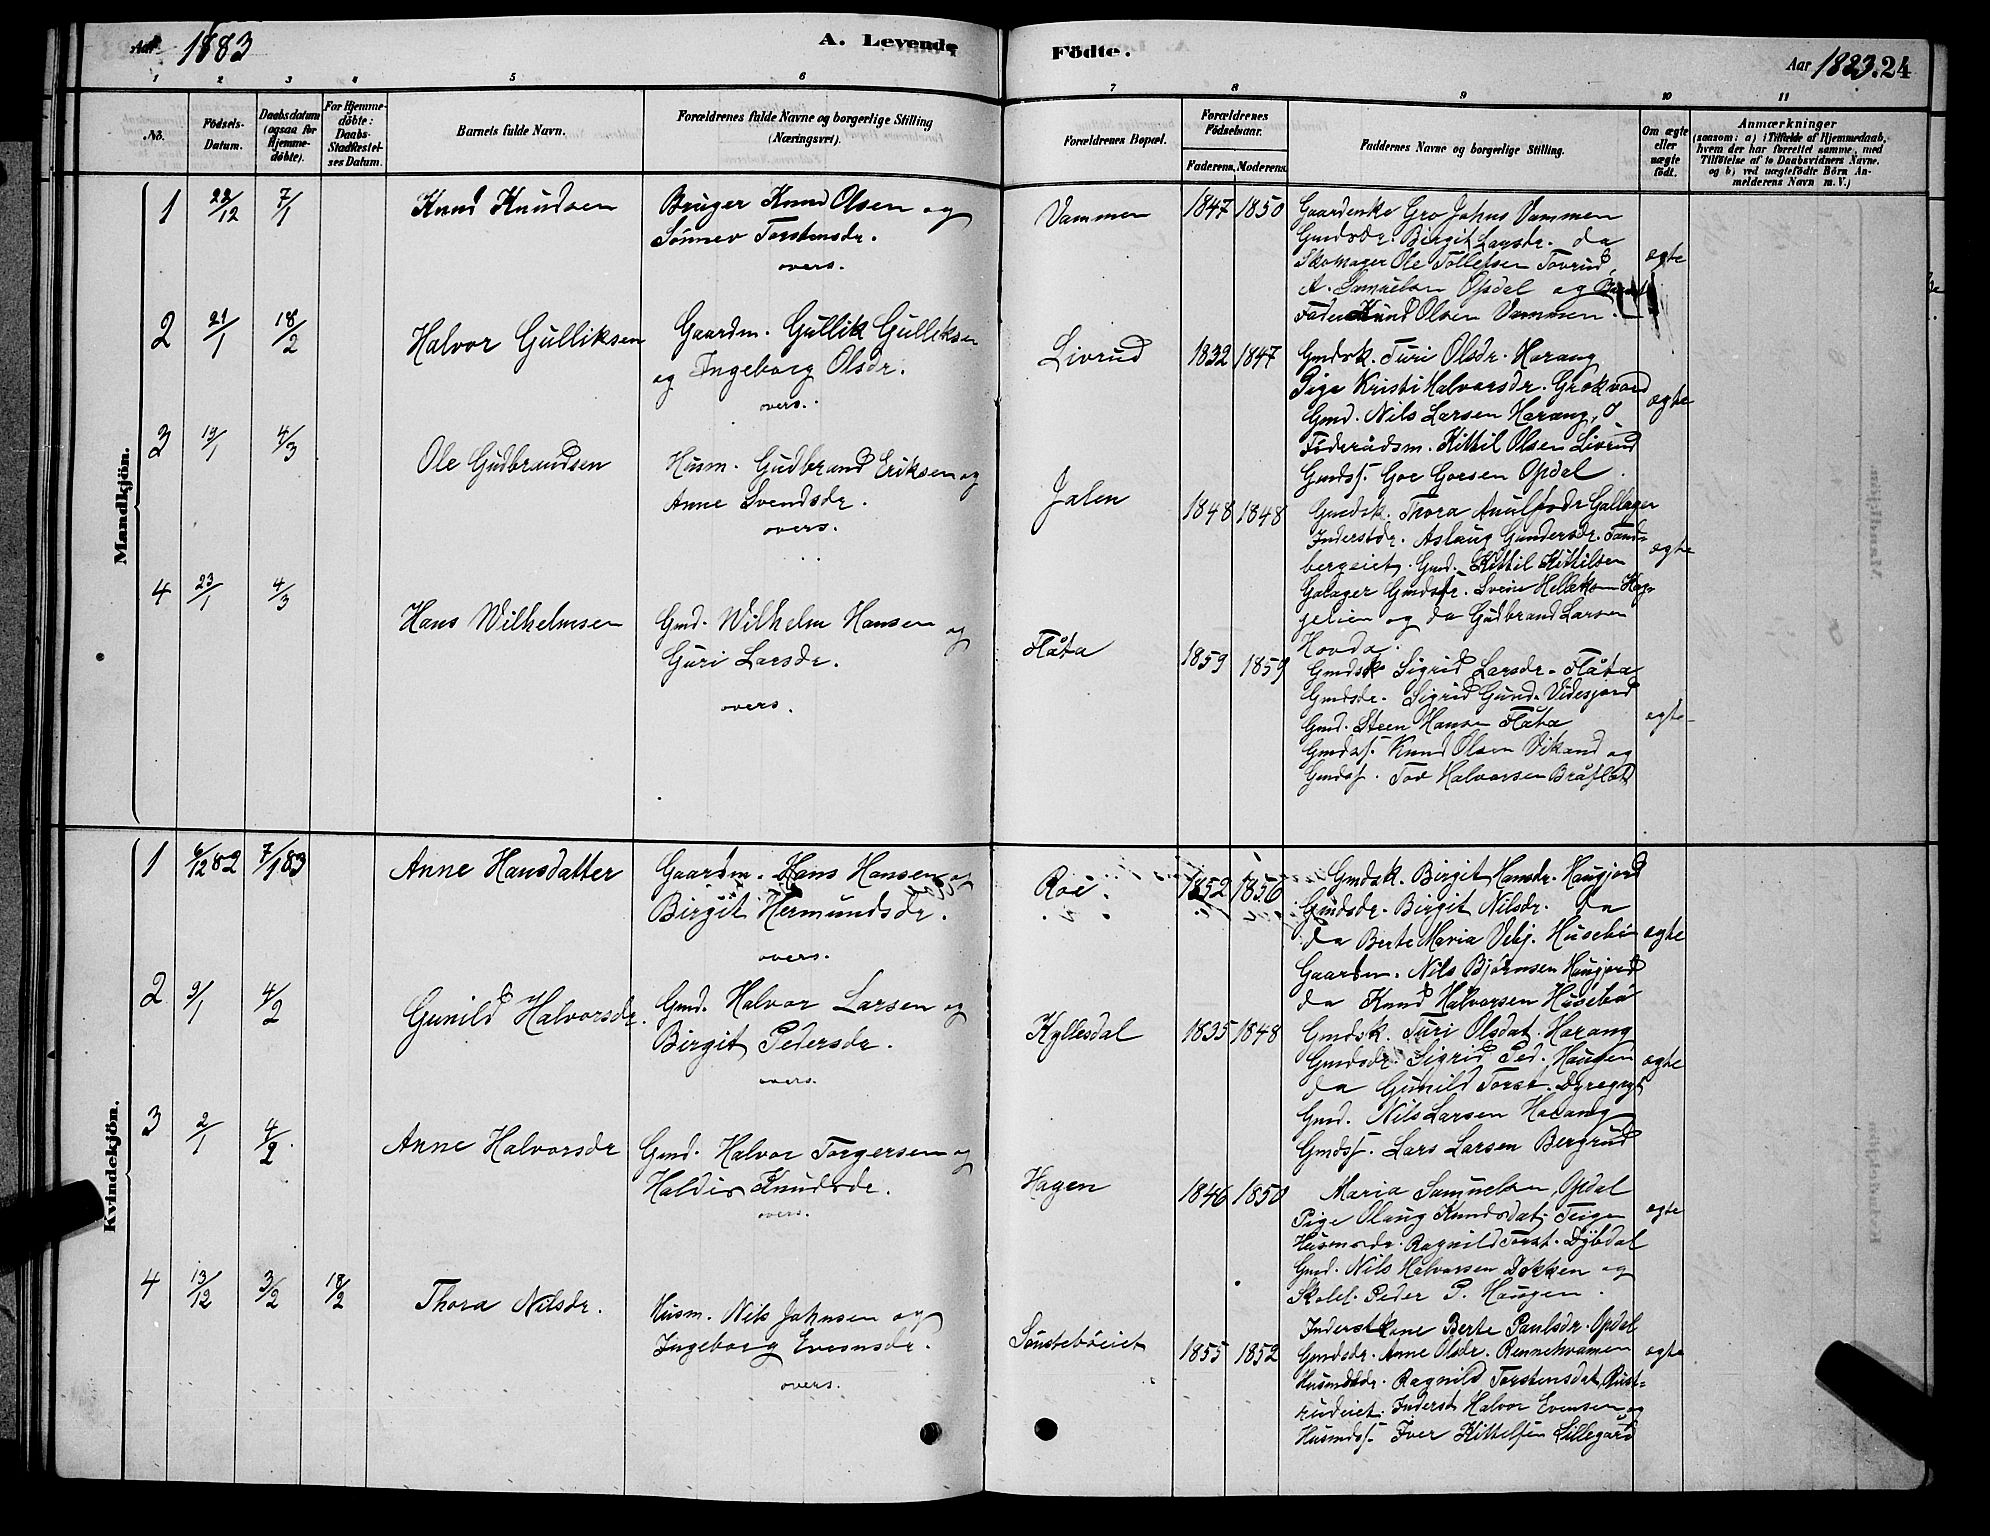 Aar 1883
A. Levende Födte.
Aar 1883. 24
1 2 3 4 5 6 7 8 9 10 11
No.
Födsels-Datum.
Daabsdatum (ogsaa for Hjemmedöbte).
For Hjemmedöbte: Daabs-Stadfæstelses Datum.
Barnets fulde Navn.
Forældrenes fulde Navne og borgerlige Stilling (Næringsvei).
Forældrenes Bopæl.
Forældrenes Födselsaar.
Faderens. Moderens.
Faddernes Navne og borgerlige Stilling.
Om ægte eller uægte födt.
Anmærkninger
(saasom: a) i Tilfælde af Hjemmedaab, hvem der har forrettet samme, med Tilföielse af to Daabsvidners Navne, og b) ved uægtefödte Börn Anmelderens Navn m. V.)
Mandkjön.
1 22/12 7/1 Knud Knudsen
Bruger Knud Olsen og
Sönnev Torstensdr.
overs.
Vammen 1847 1850
Gaardenke Gro Johns Vammen
Gmdsdr. Birgit Larsdr. da
Skomager Ole Tollefsen Tovrud
A. Samuelsen Opdal og
Fader Knud Olsen Vammen.
ægte
2 21/1 18/2 Halvor Gulliksen
Gaardm. Gullik Gulliksen
og Ingeborg Olsdr.
overs.
Livrud 1832 1847
Gmdsk. Turi Olsdr. Harang
Pige Kristi Halvorsdr. Grokvard
Gmd. Nils Larsen Harang, o
Föderådsm. Kittil Olsen Livrud
Gmdsf. Goe Goesen Opdal.
ægte
3 19/1 4/3 Ole Gudbrandsen
Husm. Gudbrand Eriksen og
Anne Svendsdr.
overs.
Jalen 1848 1848
Gmdsk. Thora Aaulfsdr Gallager
Inderstdr. Aslaug Gundersdr. Tand-
bergeiet. Gmd. Kittil Kittilsen
Galager Gmdsf. Svein Helleksen Hag-
jelien og da Gudbrand Larsen
Hovda.
ægte
4 23/1 4/3 Hans Wilhelmsen
Gmd. Wilhelm Hansen og
Guri Larsdr.
overs.
Flåta 1859 1859
Gmdsk Sigrid Larsdr. Flåta
Gmdsdr. Sigrid Gund. Videsjord
Gmd. Steen Hansen Flåta
Gmdsf. Knud Olsen Vikand og
Gmdsf. Tov Halvorsen Bråflåt
ægte
Kvindekjön.
1 6/12 82 7/1 83 Anne Hansdatter
Gaardm. Hans Hansen og
Birgit Hermundsdr.
overs.
Roe 1852 1856
Gmdsk. Birgit Hansdr. Haugjord
Gmdsdr. Birgit Nilsdr. da
da Berte Maria Vebj. Husebö
Gaardm. Nils Bjørnsen Haugjord
da Knud Halvorsen Husebö
ægte
2 9/1 4/2 Gunild Halvorsdr.
Gmd. Halvor Larsen og
Birgit Pedersdr.
overs.
Kyllesdal 1835 1848
Gmdsk. Turi Olsdat. Harang
Gmdsdr. Sigrid Ped. Haugen
da Gunild Torst. Dyregryt
Gmd. Nils Larsen Harang
Gmdsf. Lars Larsen Bergrud
ægte
3 2/1 4/2. Anne Halvorsdr
Gmd. Halvor Torgersen og
Haldis Knudsdr.
overs.
Hagen 1846 1850
Maria Samuelsen, Opdal
Pige Olaug Knudsdat. Teigen
Husmsdr. Ragnild Torst. Dybdal
Gmd. Nils Halvorsen Dokken og
Skolel. Peder P. Haugen.
ægte
4 13/12 3/2 18/2 Thora Nilsdr.
Husm. Nils Johnsen og
Ingeborg Evensdr.
overs.
Söusteböeiet 1855 1852
Inderstkone Berte Paulsdr. Opdal
Gmdsdr. Anne Olsdr. Rennehvamen
Husmdsdr. Ragnild Torstensdat, Rust-
rudeiet. Inderst Halvor Evensen og
Husmdsf. Iver Kittelsen Lillegård
ægte